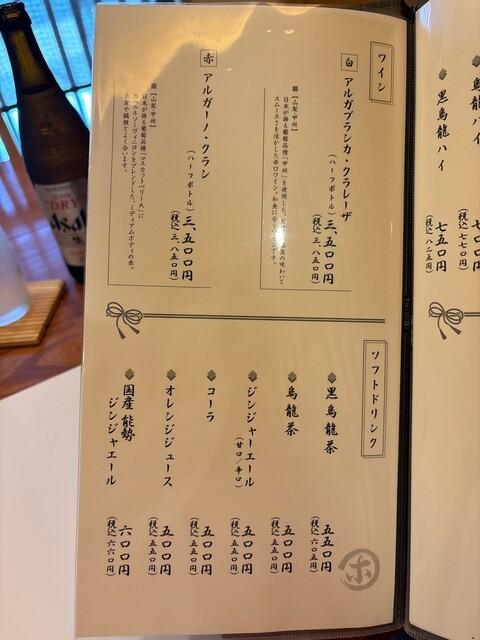 黒烏龍ハイ
七五〇円
(税込 八二五円)
七〇〇円
(税込 七七〇円)
ワイン
白
アルガブランカ・クラレーザ
(ハーフボトル)
三、五〇〇円
(税込 三、八五〇円)
【山梨・甲州】
日本が誇る葡萄品種「甲州」を使用した、
スムースさを活かした辛口ワイン。
赤
アルガーノ・クラン
(ハーフボトル)
三、五〇〇円
(税込 三、八五〇円)
【山梨・甲州】
日本が誇る葡萄品種「マスカットベリーA」に
カベルネソーヴィニヨンをブレンドした、ミディアムボディの赤。
ソフトドリンク
黒烏龍茶
五五〇円
(税込 六〇五円)
烏龍茶
五〇〇円
(税込 五五〇円)
ジンジャーエール
(甘口/辛口)
五〇〇円
(税込 五五〇円)
コーラ
五〇〇円
(税込 五五〇円)
オレンジジュース
五〇〇円
(税込 五五〇円)
国産 能勢
ジンジャエール
六〇〇円
(税込 六六〇円)
ホ
DRY
Asahi
生